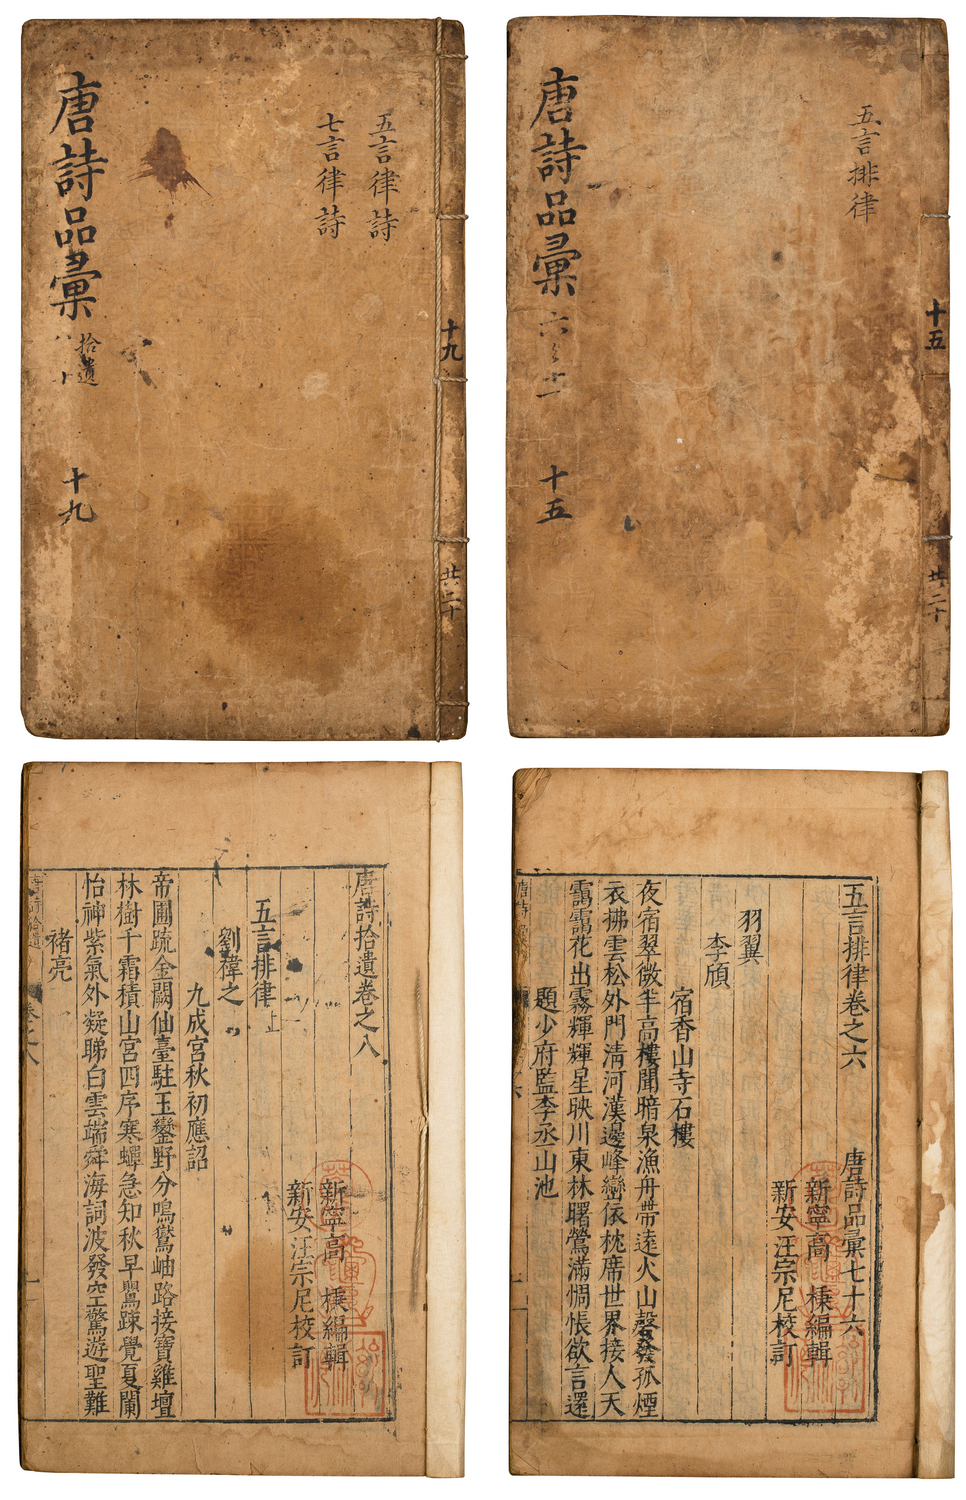 五言律詩
七言律詩
唐詩品彙
拾遺
十九
十九
共二十
五言排律
唐詩品彙
六之十一
十五
十五
共二十
唐詩拾遺卷之八
新寧高 棅編輯
新安汪宗尼校訂
五言排律上
劉禕之
九成宮秋初應詔
帝圃疏金闕仙臺駐玉鑾野分鳴鷟岫路接寶雞壇
林樹千霜積山宮四序寒蟬急知秋早鸎踈覺夏闌
怡神紫氣外凝睇白雲端舜海詞波發空驚遊聖難
褚亮
五言排律卷之六
唐詩品彙七十六
新寧高 棅編輯
新安汪宗尼校訂
羽翼
李頎
宿香山寺石樓
夜宿翠微半高樓聞暗泉漁舟帶遠火山磬發孤煙
衣拂雲松外門清河漢邊峰巒依枕席世界接人天
靄靄花出霧輝輝星映川東林曙鶯滿惆悵欲言還
題少府監李丞山池